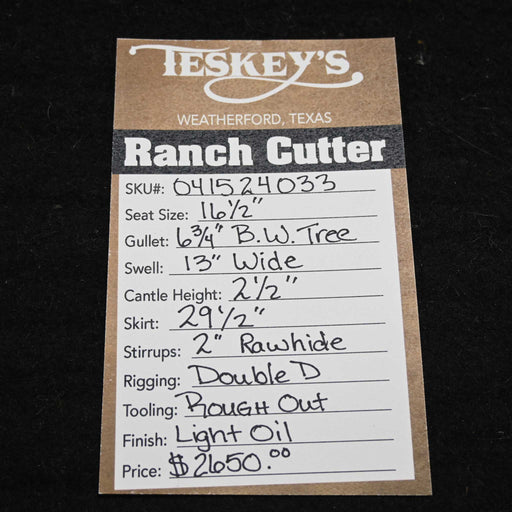 TESKEY'S
WEATHERFORD, TEXAS
Ranch Cutter
SKU#: 041524033
Seat Size: 16½"
Gullet: 6¾" B.W. Tree
Swell: 13" Wide
Cantle Height: 2½"
Skirt: 29½"
Stirrups: 2" Rawhide
Rigging: Double D
Tooling: ROUGH Out
Finish: Light Oil
Price: $2650.00